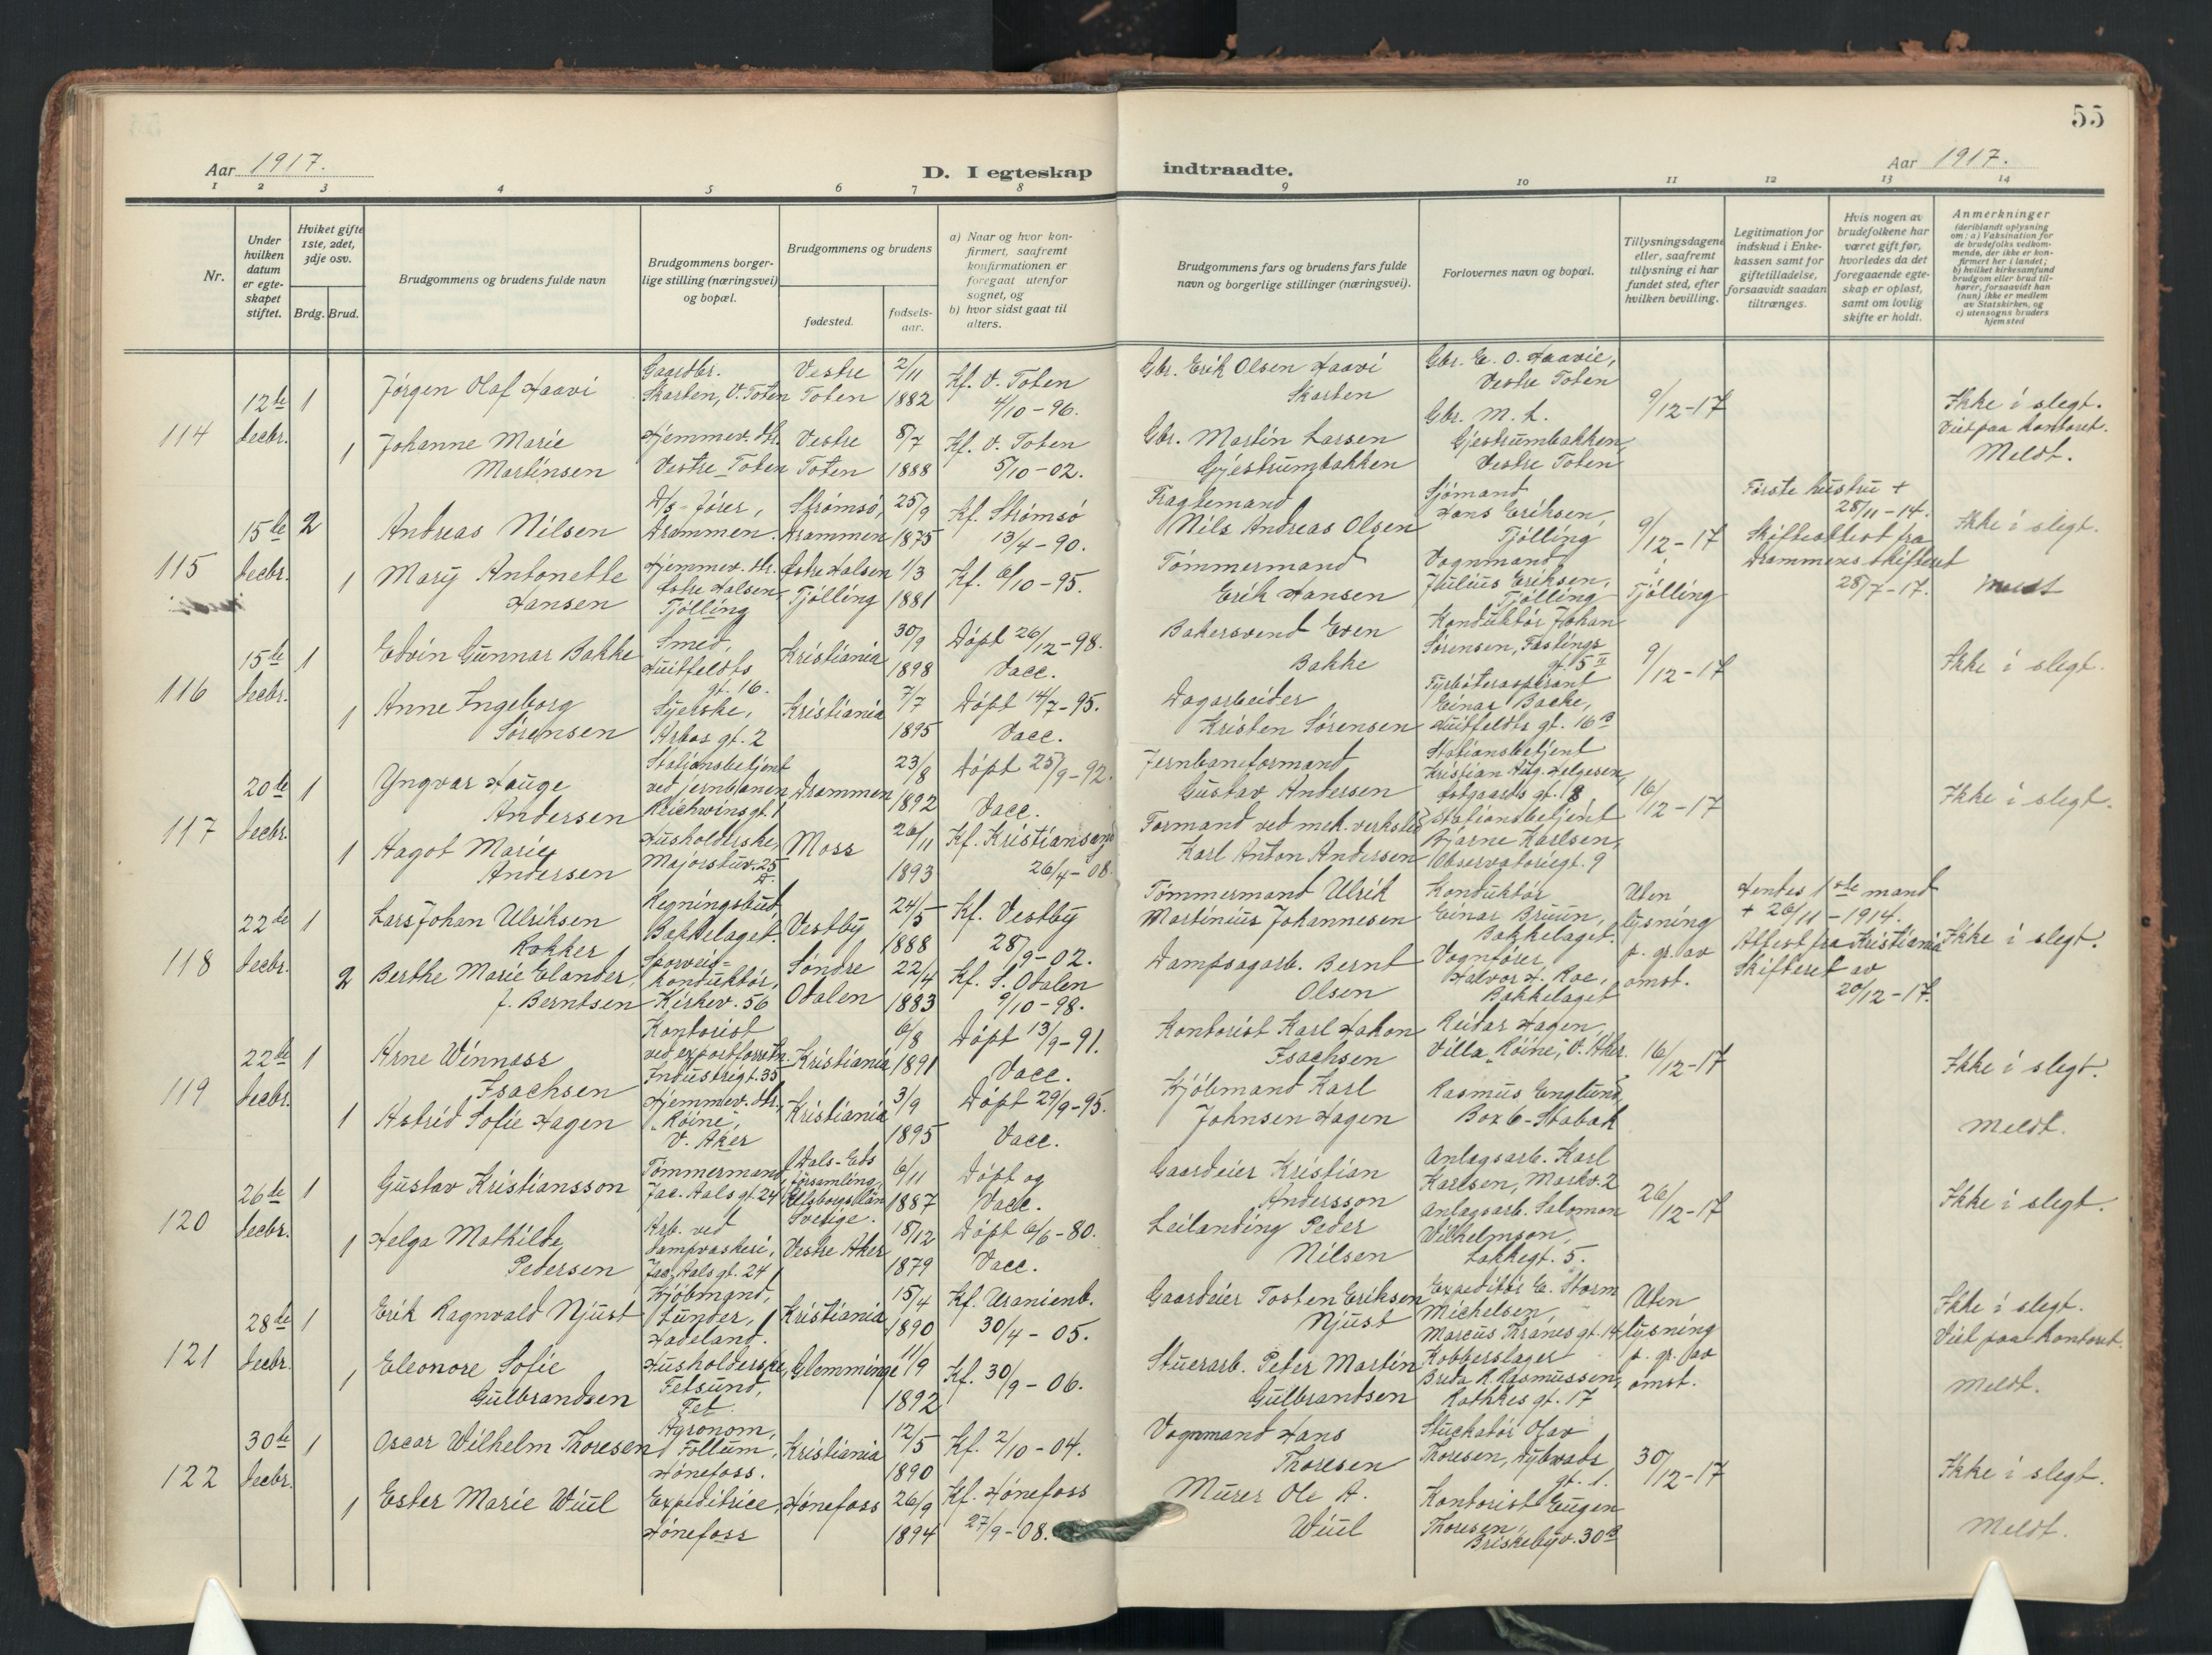 55
Aar 1917.
D. I egteskap indtraadte.
Aar 1917.
1 2 3 4 5 6 7 8 9 10 11 12 13 14
Nr.
Under hvilken datum er egteskapet stiftet.
Hviket gifte 1ste, 2det, 3dje osv.
Brdg. Brud.
Brudgommens og brudens fulde navn
Brudgommens borgerlige stilling (næringsvei) og bopæl.
Brudgommens og brudens
fødested.
fødselsaar.
a) Naar og hvor konfirmert, saafremt konfirmationen er foregaat utenfor sognet, og
b) hvor sidst gaat til alters.
Brudgommens fars og brudens fars fulde navn og borgerlige stillinger (næringsvei).
Forlovernes navn og bopæl.
Tillysningsdagene eller, saafremt tillysning ei har fundet sted, efter hvilken bevilling.
Legitimation for indskud i Enkekassen samt for giftetilladelse, forsaavidt saadan tiltrænges.
Hvis nogen av brudefolkene har været gift før, hvorledes da det foregaaende egteskap er opløst, samt om lovlig skifte er holdt.
Anmerkninger
(deriblandt oplysning om: a) Vaksination for de brudefolks vedkommende, der ikke er konfirmert her i landet; b) hvilket kirkesamfund brudgom eller brud tilhører, forsaavidt han (hun) ikke er medlem av Statskirken, og c) utensogns bruders hjemsted
114
12te Decbr.
1
Jørgen Olaf Haavi
Gaardbr. Skarten, V. Toten
Vestre Toten
2/11 1882
Kf. V. Toten 4/10-96.
Gbr. Erik Olsen Haavi Skarten
Gbr. E. O. Haavie, Vestre Toten
9/12-17
Ikke i slegt.
Viet paa kontoret.
Meldt.
1
Johanne Marie Martinsen
Hjemmev. dtr. Vestre Toten
Vestre Toten
8/7 1888
Kf. V. Toten 5/10-02.
Gbr. Martin Larsen Gjestrumbakken
Gbr. M. L. Gjestrumbakken, Vestre Toten
115
15de Decbr.
2
Andreas Nilsen
D/s-fører, Drammen.
Strømsø, Drammen
25/9 1875
Kf. Strømsø 13/4-90.
Fragtemand Nils Andreas Olsen
Sjømand Hans Eriksen, Tjølling
9/12-17 i Tjølling
Første hustru + 28/11-14.
Skifteattest fra Drammens skifteret 28/7-17.
Ikke i slegt.
Meldt
1
Mary Antonette Hansen
Hjemmev. dtr. Østre Halsen, Tjølling
Østre Halsen Tjølling
1/3 1881
Kf. 6/10-95.
Tømmermand Erik Hansen
Vognmand Julius Eriksen, Tjølling
116
15de Decbr.
1
Edvin Gunnar Bakke
Smed, Huitfeldts gt. 16.
Kristiania
30/9 1898
Døpt 26/12-98. Vacc.
Bakersvend Even Bakke
Konduktør Johan Sørensen, Fastings gt. 5
9/12-17
Ikke i slegt.
1
Anne Ingeborg Sørensen
Syerske, Arbos gt. 2
Kristiania
7/7 1895
Døpt 14/7-95. Vacc.
Dagarbeider Kristen Sørensen
Fyrbøteraspirant Einar Bakke, Huitfeldts gt. 16 B
117
20de Decbr.
1
Yngvar Hauge Andersen
Stationsbetjent ved jernbanen Reichwins gt. 1
Drammen
23/8 1892
Døpt 25/9-92. Vacc.
Jernbaneformand Gustav Andersen
Stationsbetjent Kristian Aug. Helgesen, gt. 18
16/12-17
Ikke i slegt.
1
Hagot Marie Andersen
Husholderske, Majorstuv. 25
Moss
26/11 1893
Kf. Kristiansand 26/4-08.
Formand ved mek. verksted Karl Anton Andersen
Stationsbetjent Bjarne Karlsen, Observatoriegt. 9
118
22de Decbr.
1
Lars Johan Ulriksen Rokker
Regningsbud, Bækkelaget.
Vestby
24/5 1888
Kf. Vestby 28/9-02.
Tømmermand Ulrik Martinius Johannesen
Konduktør Einar Bruun, Bækkelaget.
Uten lysning p. gr. av omst.
Hendes 1ste mand + 26/11-1914.
Attest fra Kristiania Skifteret av 20/12-17.
Ikke i slegt.
2
Berthe Marie Elander, f. Berntsen
Sporveis-konduktør, Kirkev. 56
Søndre Odalen
22/4 1883
Kf. S. Odalen 9/10-98.
Dampsagarb. Bernt Olsen
Vognfører Halvor H. Roe, Bækkelaget
119
22de Decbr.
1
Arne Winness Isachsen
Kontorist ved exportforretn. Industrigt. 35
Kristiania
6/8 1891
Døpt 13/9-91. Vacc.
Kontorist Karl Hakon Isachsen
Reidar Hagen, Villa "Røine", V. Aker.
16/12-17
Ikke i slegt.
Meldt.
1
Astrid Sofie Hagen
Hjemmev. dtr., "Røine", V. Aker
Kristiania
3/9 1895
Døpt 29/9-95. Vacc.
Kjøbmand Karl Johnsen Hagen
Rasmus Englund, Box 6 - Stabæk
120
26de Decbr.
1
Gustav Kristiansson
Tømmermand, Jac. Aals gt. 24
Dals-Eds församling, Elfsborgs län Sverige.
6/11 1887
Døpt og Vacc.
Gaardeier Kristian Andersson
Anlægsarb. Karl Karlsen, Markv. 2
26/12-17
Ikke i slegt.
1
Helga Mathilde Pedersen
Arb. ved dampvaskeri, Jac. Aals gt. 24
Vestre Aker
18/12 1879
Døpt 6/6-80. Vacc.
Leilænding Peder Nilsen
Anlægsarb. Salomon Vilhelmson, Løkkegt. 5.
121
28de Decbr.
1
Erik Ragnvald Njust
Kjøbmand, Lunder, Hadeland.
Kristiania
15/4 1890
Kf. Uranienb. 30/4-05.
Gaardeier Tosten Eriksen Njust
Expeditør E. Storm Michelsen, Marcus Thranes gt. 14
Uten lysning p. gr. av omst.
Ikke i slegt.
Viet paa kontoret.
Meldt.
1
Eleonore Sofie Gulbrandsen
Husholderske, Fetsund, Fet.
Glemminge
11/9 1892
Kf. 30/9-06.
Stuerarb. Peter Martin Gulbrandsen
Kobberslager Breda R. Rasmussen, Rathkes gt. 17
122
30de Decbr.
1
Oscar Wilhelm Thoresen
Agronom, Follum, Hønefoss.
Kristiania
12/5 1890
Kf. 2/10-04.
Vognmand Hans Thoresen
Stuckatør Olav Thoresen, Dybwads gt. 1.
30/12-17
Ikke i slegt.
Meldt.
1
Ester Marie Wiul
Expeditrice, Hønefoss
Hønefoss
26/9 1894
Kf. Hønefoss 27/9-08.
Murer Ole A. Wiul
Kontorist Eugen Thoresen, Briskebyv. 30 B